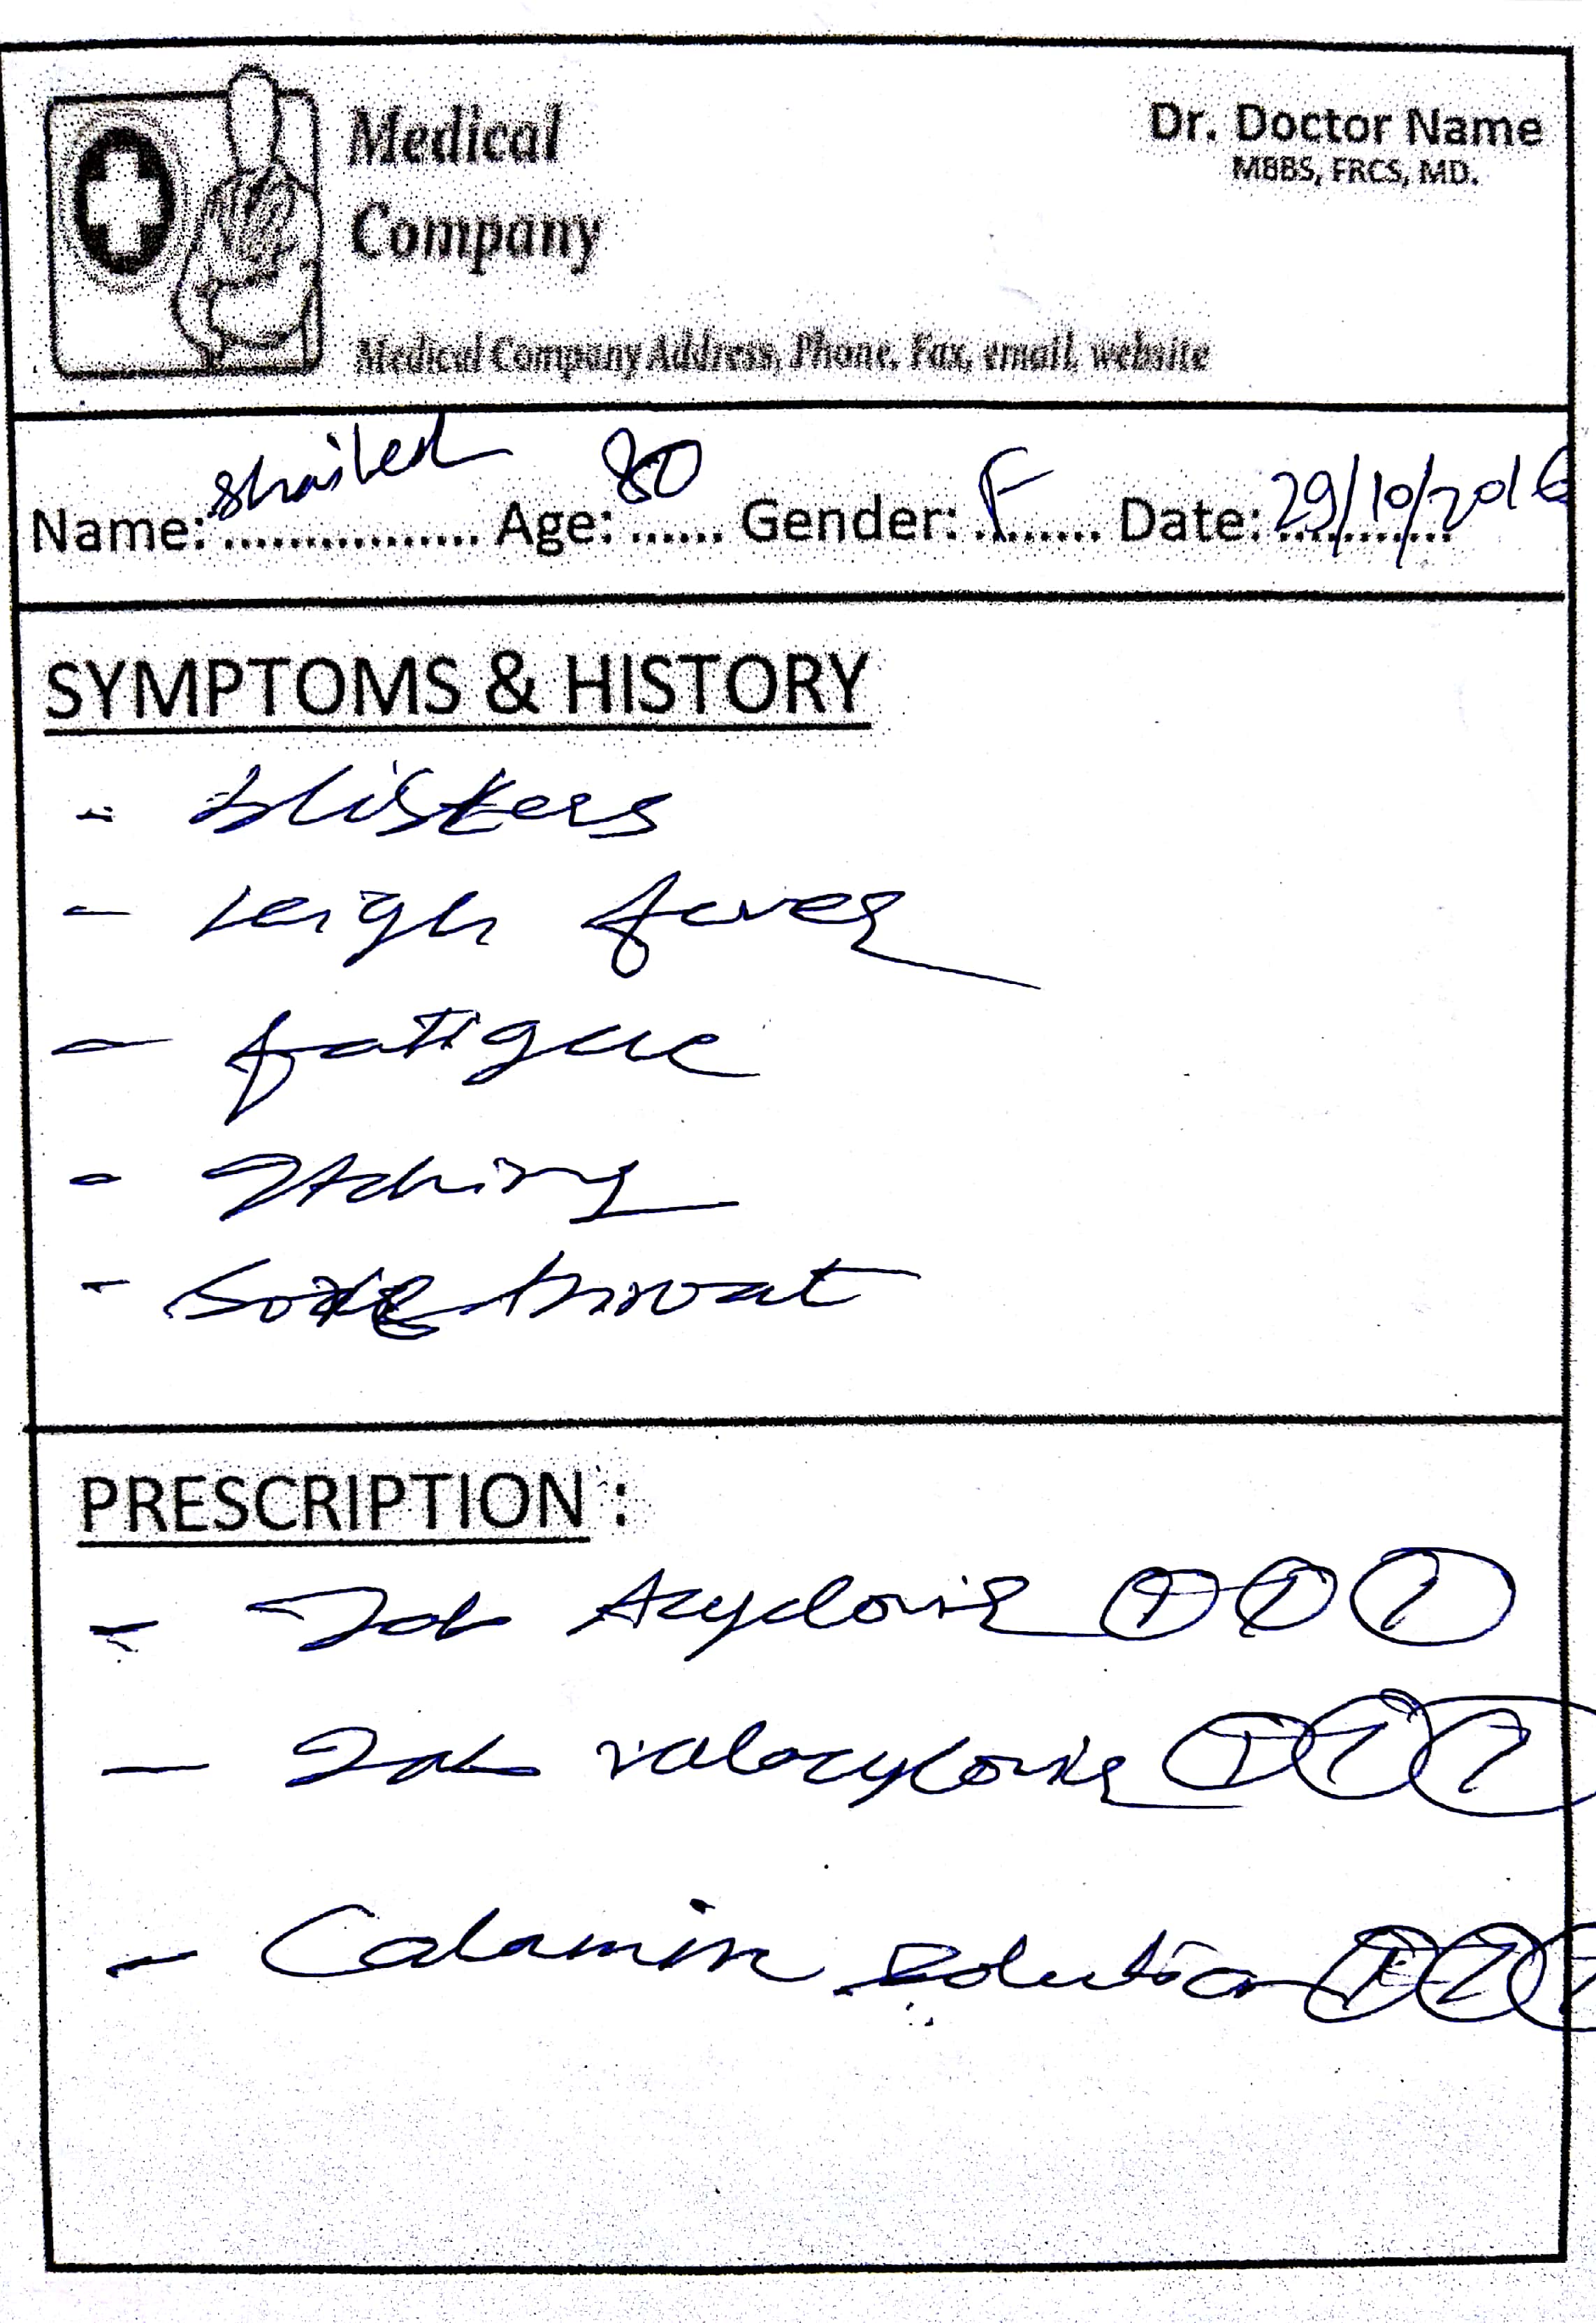 Medical
Company
Dr. Doctor Name
MBBS, FRCS, MD.
Medical Company Address, Phone, Fax, email, website
Name:................ Age: 80 ...... Gender: F ........ Date: 29/10/2016
SYMPTOMS & HISTORY
- blisters
- High fever
- fatigue
- Itching
- Sore throat
PRESCRIPTION :
- Tab Acyclovir 1 1 1
- Tab valacyclovir 1 1 1
- Calamine solution 1 1 1